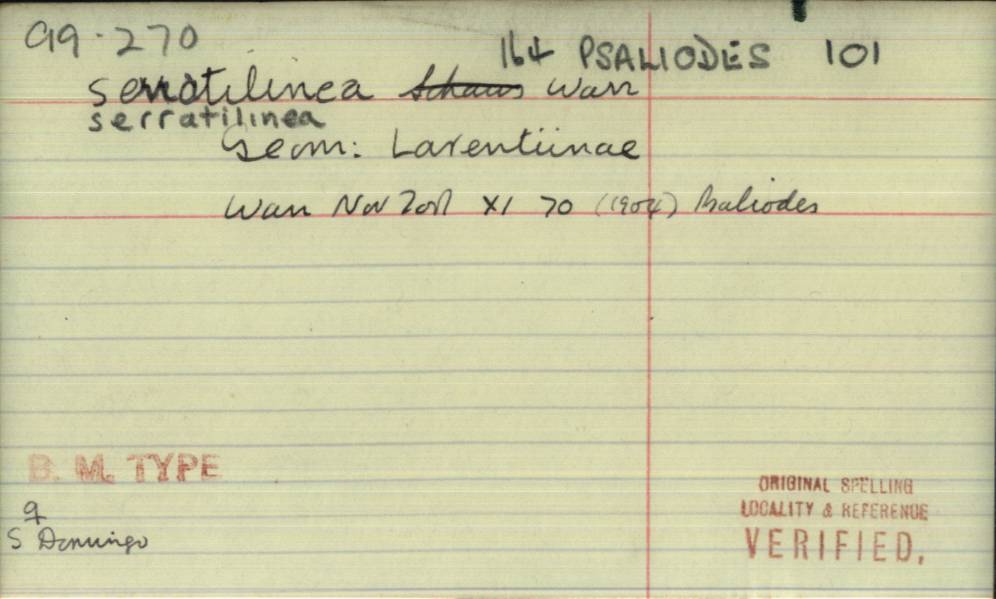 99.270
164 PSALIODES 101
serratilinea Schaus Warr
serratilinea
Geom: Larentiinae
Warr Nov Zool XI 70 (1904) Psaliodes
B. M. TYPE
♀
S Domingo
ORIGINAL SPELLING
LOCALITY & REFERENCE
VERIFIED.